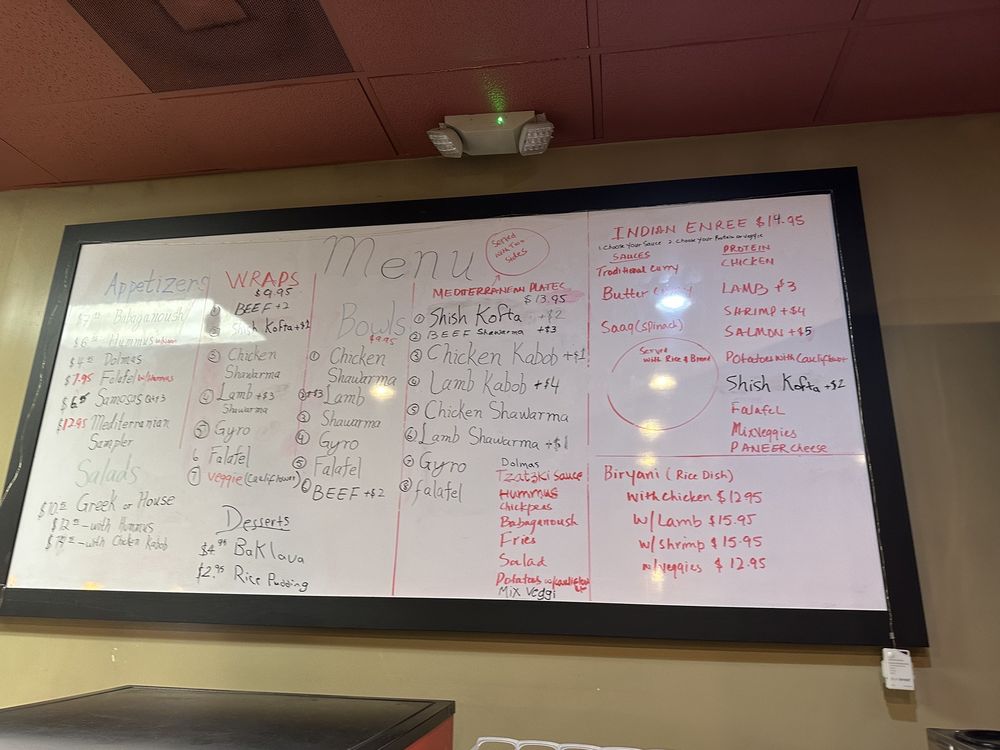 Menu
Served
With Two
Sides
Appetizers
Babaganoush
Hummus
Dolmas
$7.95 Falafel w/Hummus
Samosas
$12.95 Mediterranean
Sampler
Salads
Greek or House
with Hummus
with Chicken Kabob
WRAPS
$9.95
BEEF +2
Shish Kofta +$2
3 Chicken
Shawarma
4 Lamb +$3
Shawarma
5 Gyro
6 Falafel
7 Veggie (Cauliflower)
Desserts
$4.95 Baklava
$2.95 Rice Pudding
Bowls
$9.95
1 Chicken
Shawarma
2 +$3 Lamb
3 Shawarma
4 Gyro
5 Falafel
6 BEEF +$2
MEDITERRANEAN PLATES
$13.95
1 Shish Kofta +$2
2 BEEF Shawarma +$3
3 Chicken Kabob +$1
4 Lamb Kabob +$4
5 Chicken Shawarma
6 Lamb Shawarma +$1
7 Gyro
8 falafel
Dolmas
Tzatziki Sauce
Hummus
Chickpeas
Babaganoush
Fries
Salad
Potatoes w/cauliflower
Mix Veggi
INDIAN ENREE $14.95
1. Choose Your Sauce 2. Choose Your Protein or veggie
SAUCES
Traditional Curry
Butter
Saag (spinach)
Served
with Rice & Bread
PROTEIN
CHICKEN
LAMB +$3
SHRIMP +$4
SALMON +$5
Potatoes with Cauliflower
Shish Kofta +$2
Falafel
Mix veggies
PANEER cheese
Biryani (Rice Dish)
with chicken $12.95
w/Lamb $15.95
w/shrimp $15.95
w/veggies $12.95